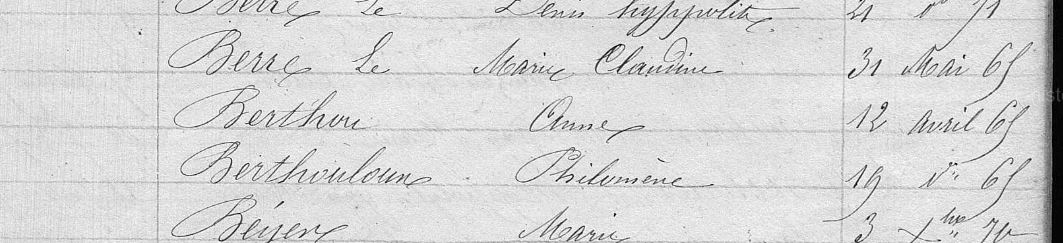 Berre Le Denis hyppolite 21 do 71
Berre Le Marie Claudine 31 Mai 65
Berthou Anne 12 avril 65
Berthouloum Philomène 19 do 65
Béyer Marie 3 xbre 70